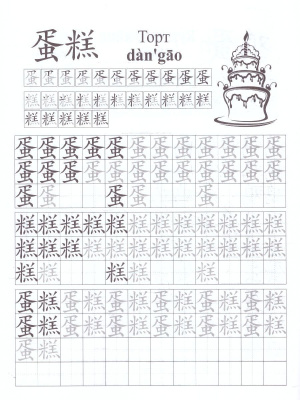 蛋糕
Торт
dàn'gāo
蛋蛋蛋蛋蛋蛋蛋蛋蛋蛋蛋
糕糕糕糕糕糕糕糕糕糕
糕糕糕糕糕糕
蛋蛋蛋蛋蛋蛋蛋蛋蛋蛋蛋蛋
蛋蛋蛋蛋蛋蛋蛋蛋蛋蛋蛋蛋
蛋蛋蛋
糕糕糕糕糕糕糕糕糕糕糕糕
糕糕糕糕糕糕糕糕糕糕糕糕
糕糕糕
蛋糕蛋糕蛋糕蛋糕蛋糕蛋糕
蛋糕蛋糕蛋糕蛋糕蛋糕蛋糕
蛋糕